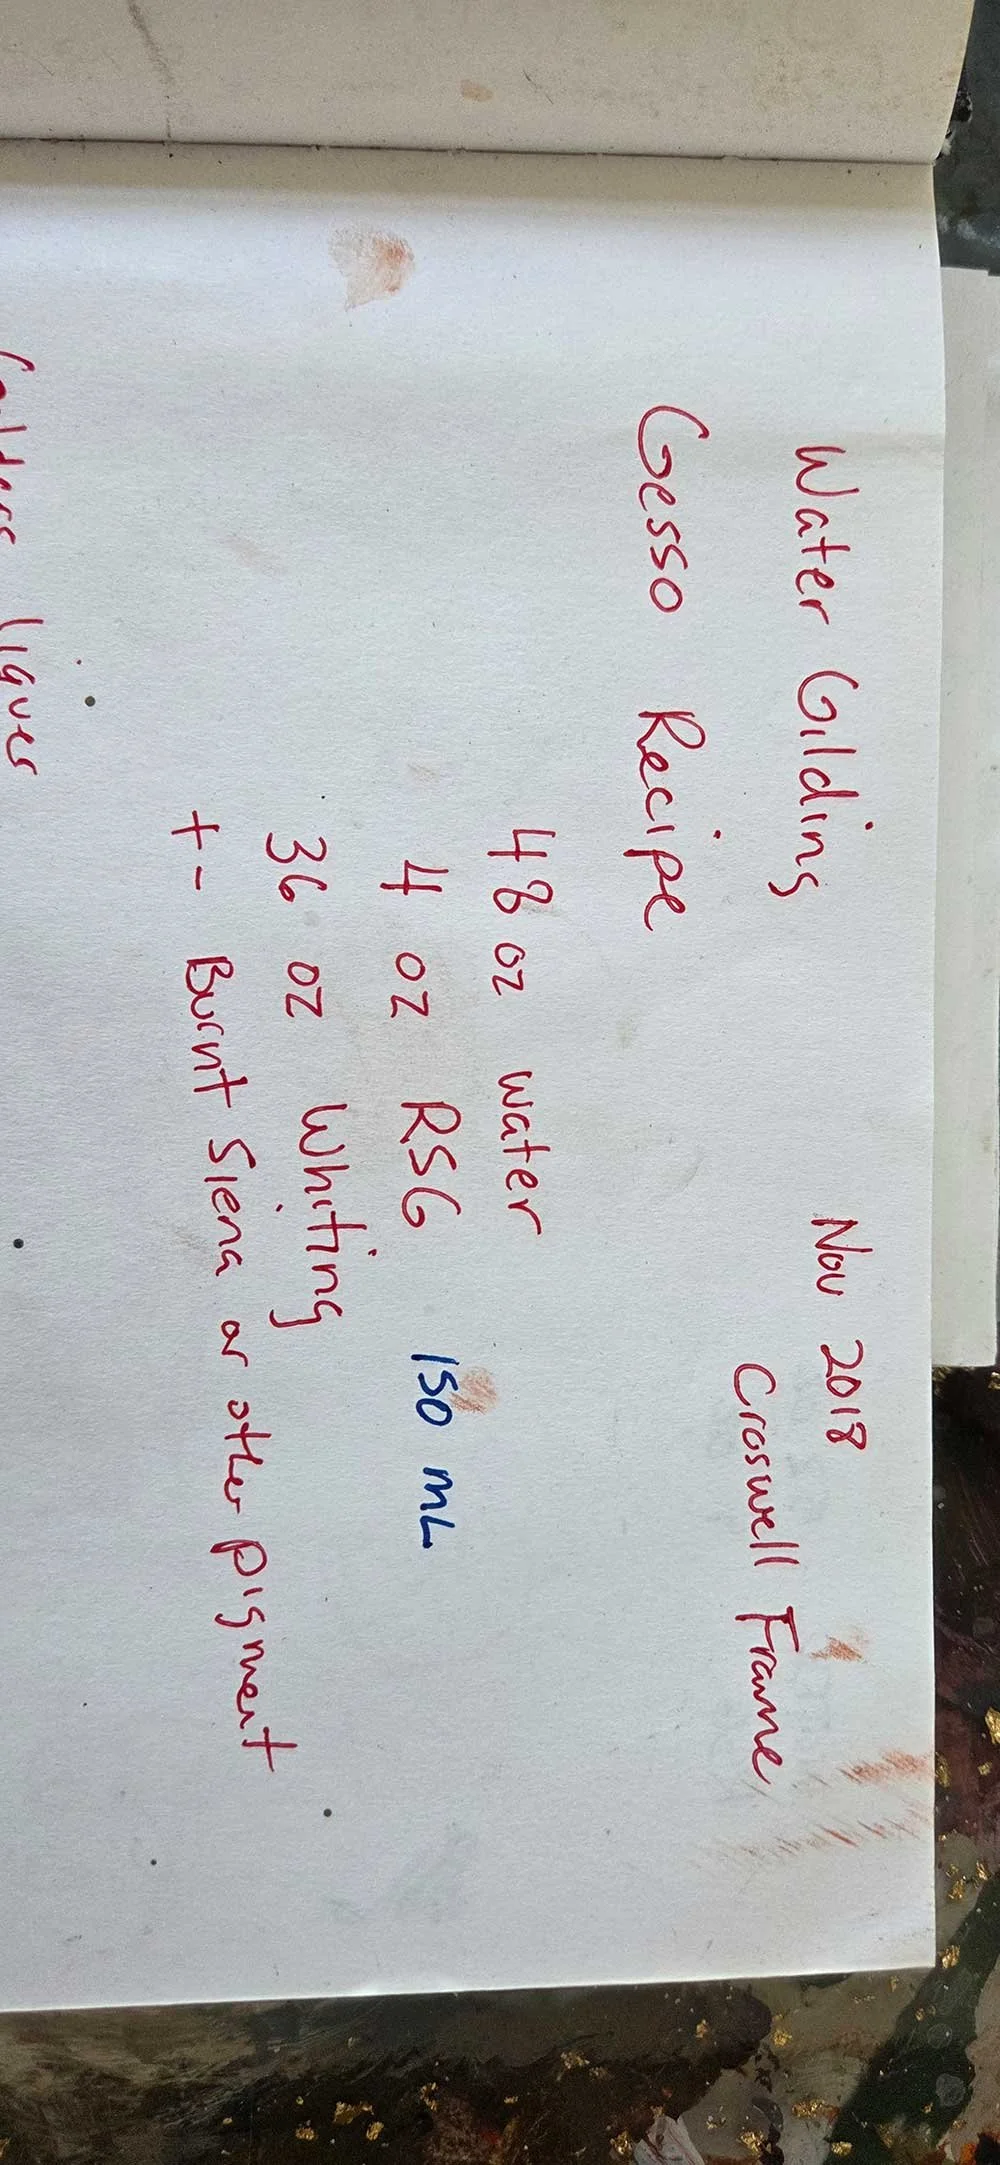 Water Gilding Nov 2018
Croswell Frame
Gesso Recipe
48 oz water
4 oz RSG 150 mL
36 oz Whiting
+- Burnt Siena or other pigment
liquer